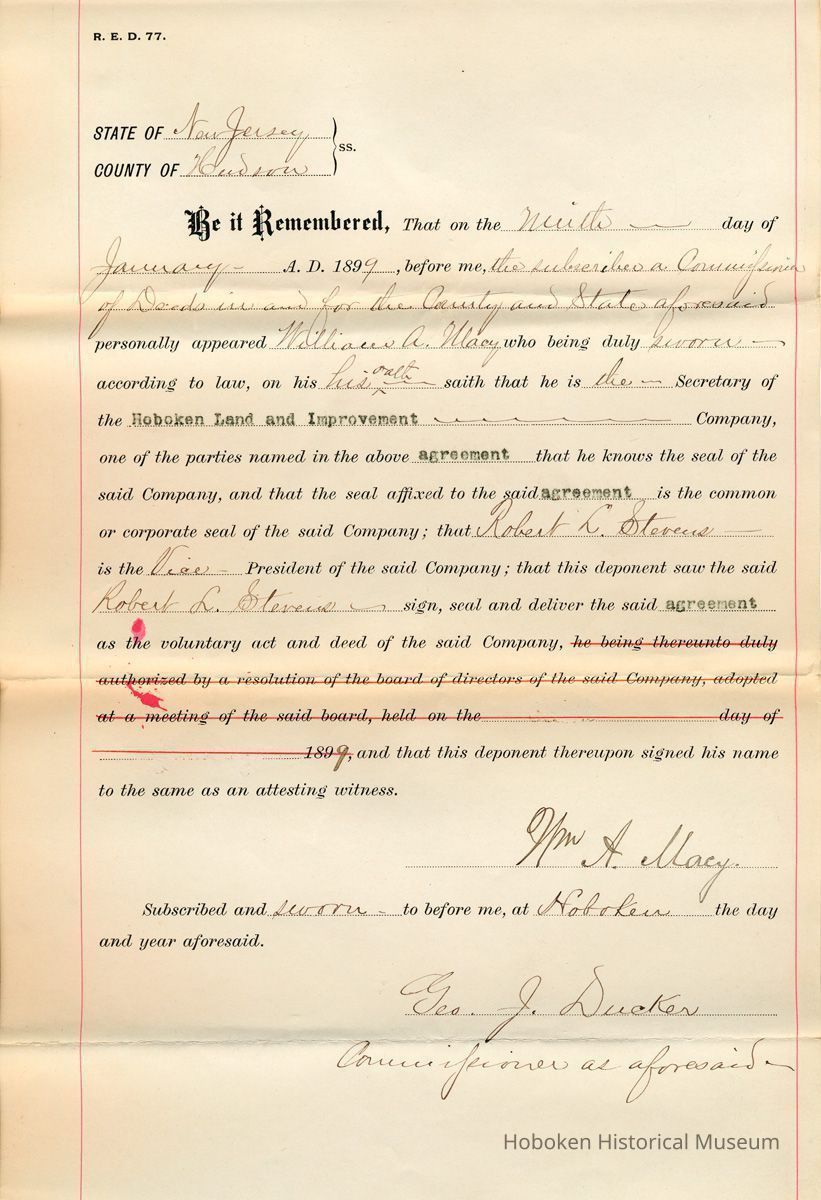 R. E. D. 77.
STATE OF New Jersey
ss.
COUNTY OF Hudson
Be it Remembered, That on the Ninth day of
January A. D. 1899, before me, the subscriber a Commissioner
of Deeds in and for the County and State aforesaid
personally appeared William A. Macy who being duly sworn
according to law, on his his oath saith that he is the Secretary of
the Hoboken Land and Improvement Company,
one of the parties named in the above agreement that he knows the seal of the
said Company, and that the seal affixed to the said agreement is the common
or corporate seal of the said Company; that Robert L. Stevens
is the Vice President of the said Company; that this deponent saw the said
Robert L. Stevens sign, seal and deliver the said agreement
as the voluntary act and deed of the said Company, he being thereunto duly
authorized by a resolution of the board of directors of the said Company, adopted
at a meeting of the said board, held on the day of
1899, and that this deponent thereupon signed his name
to the same as an attesting witness.
Wm A. Macy.
Subscribed and sworn to before me, at Hoboken the day
and year aforesaid.
Geo. J. Ducker
Commissioner as aforesaid
Hoboken Historical Museum